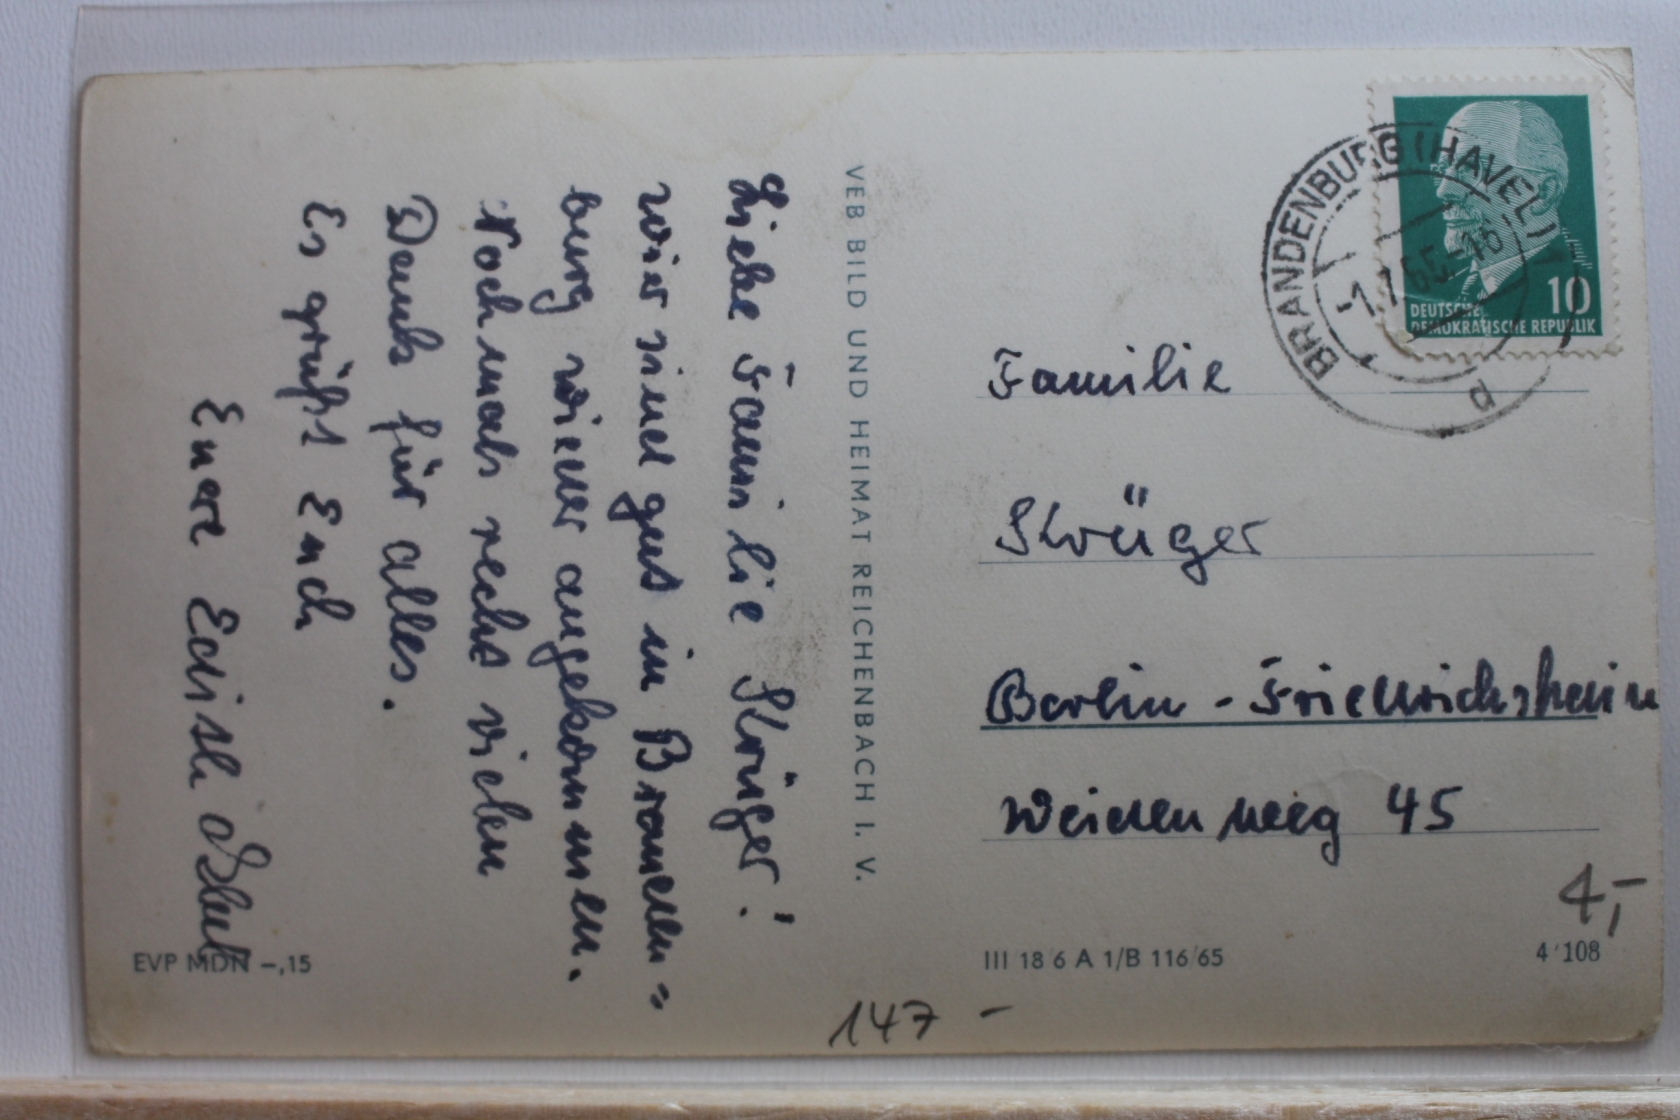 Liebe Familie Krüger!
wir sind gut in Branden=
burg wieder angekommen.
Nochmals recht vielen
Dank für alles.
Es grüßt Euch
Euere Edith
VEB BILD UND HEIMAT REICHENBACH I. V.
BRANDENBURG (HAVEL) 1
-1.7.65-16
a
10
DEUTSCHE
DEMOKRATISCHE REPUBLIK
Familie
Krüger
Berlin - Friedrichshain
Weidenweg 45
4,-
EVP MDN -,15
III 18 6 A 1/B 116/65
4/108
147 -